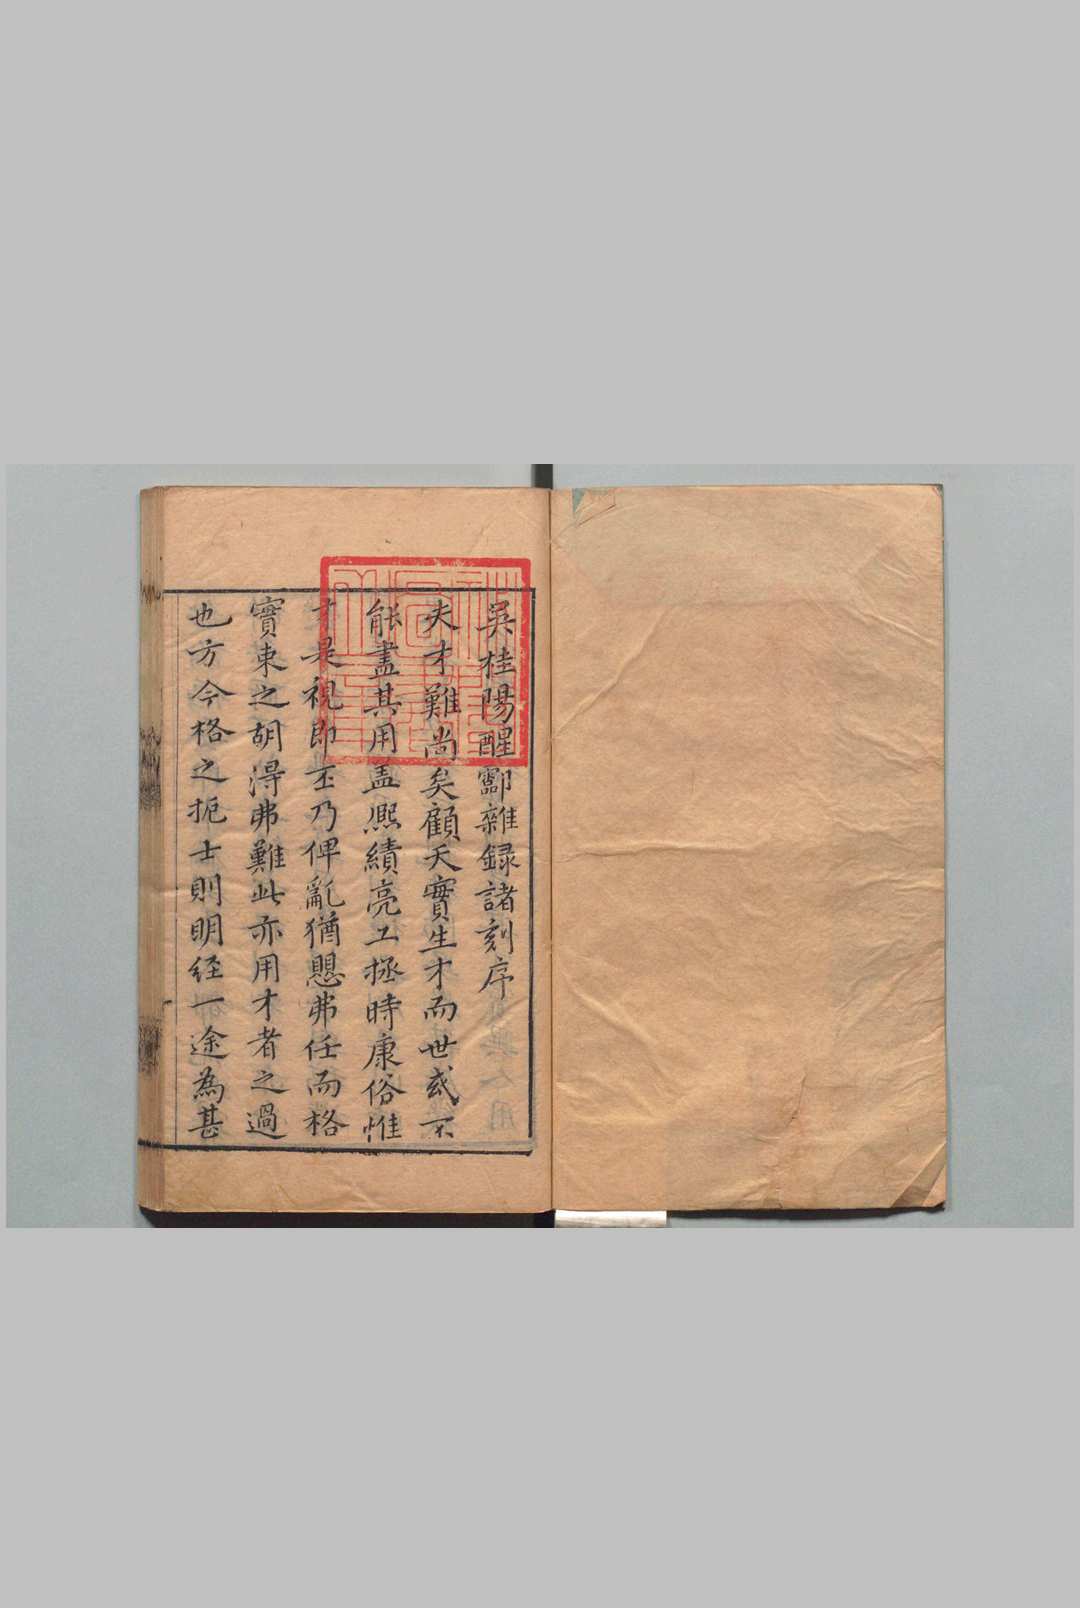 吳桂陽醒酃雜録諸刻序
夫才難尚矣顧天實生才而世或不
能盡其用盖熈績亮工拯時康俗惟
才是視即至乃俾亂猶愳弗任而格
實東之胡淂弗難此亦用才者之過
也方今格之扼士則明経一途為甚